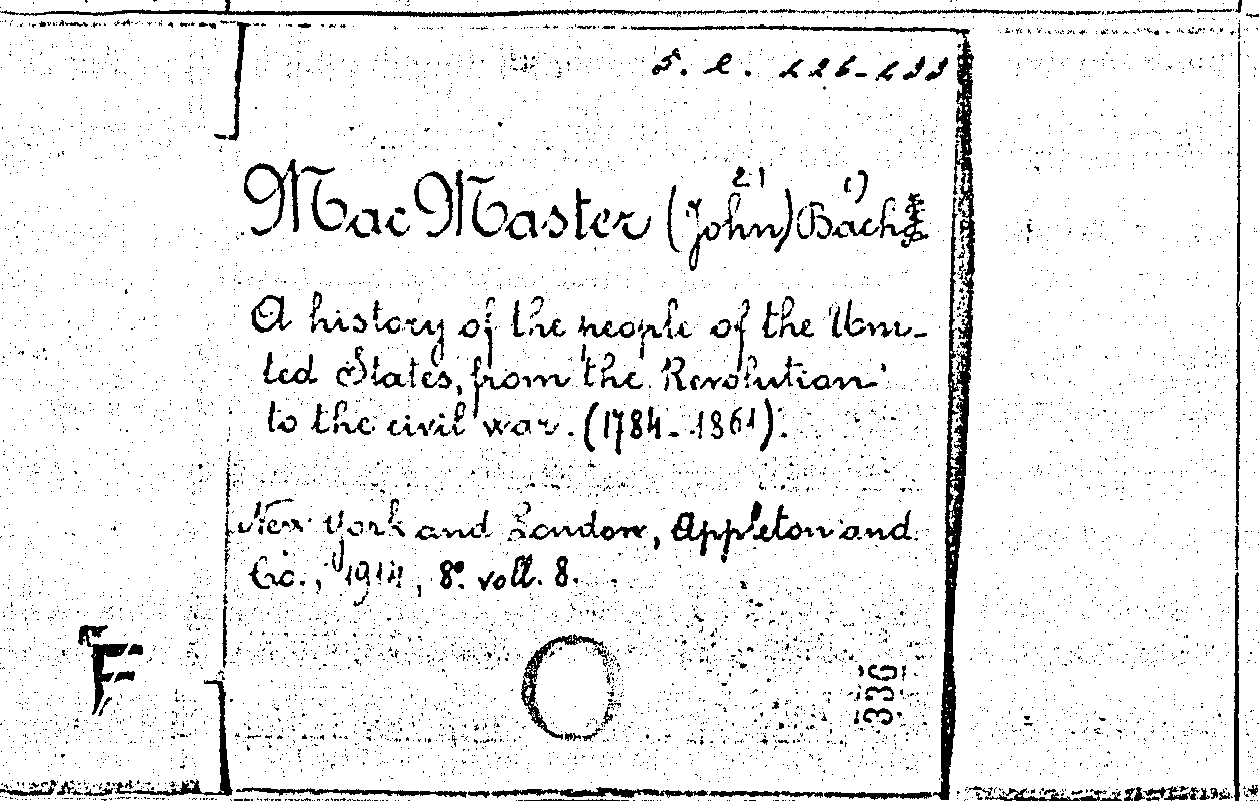 S. C. 226-233
2) 1)
Mac Master (John) Bach
A history of the people of the Uni-
ted States, from the Revolution
to the civil war. (1784-1861).
New York and London, Appleton and
Co., 1914, 8°. voll. 8.
F
336